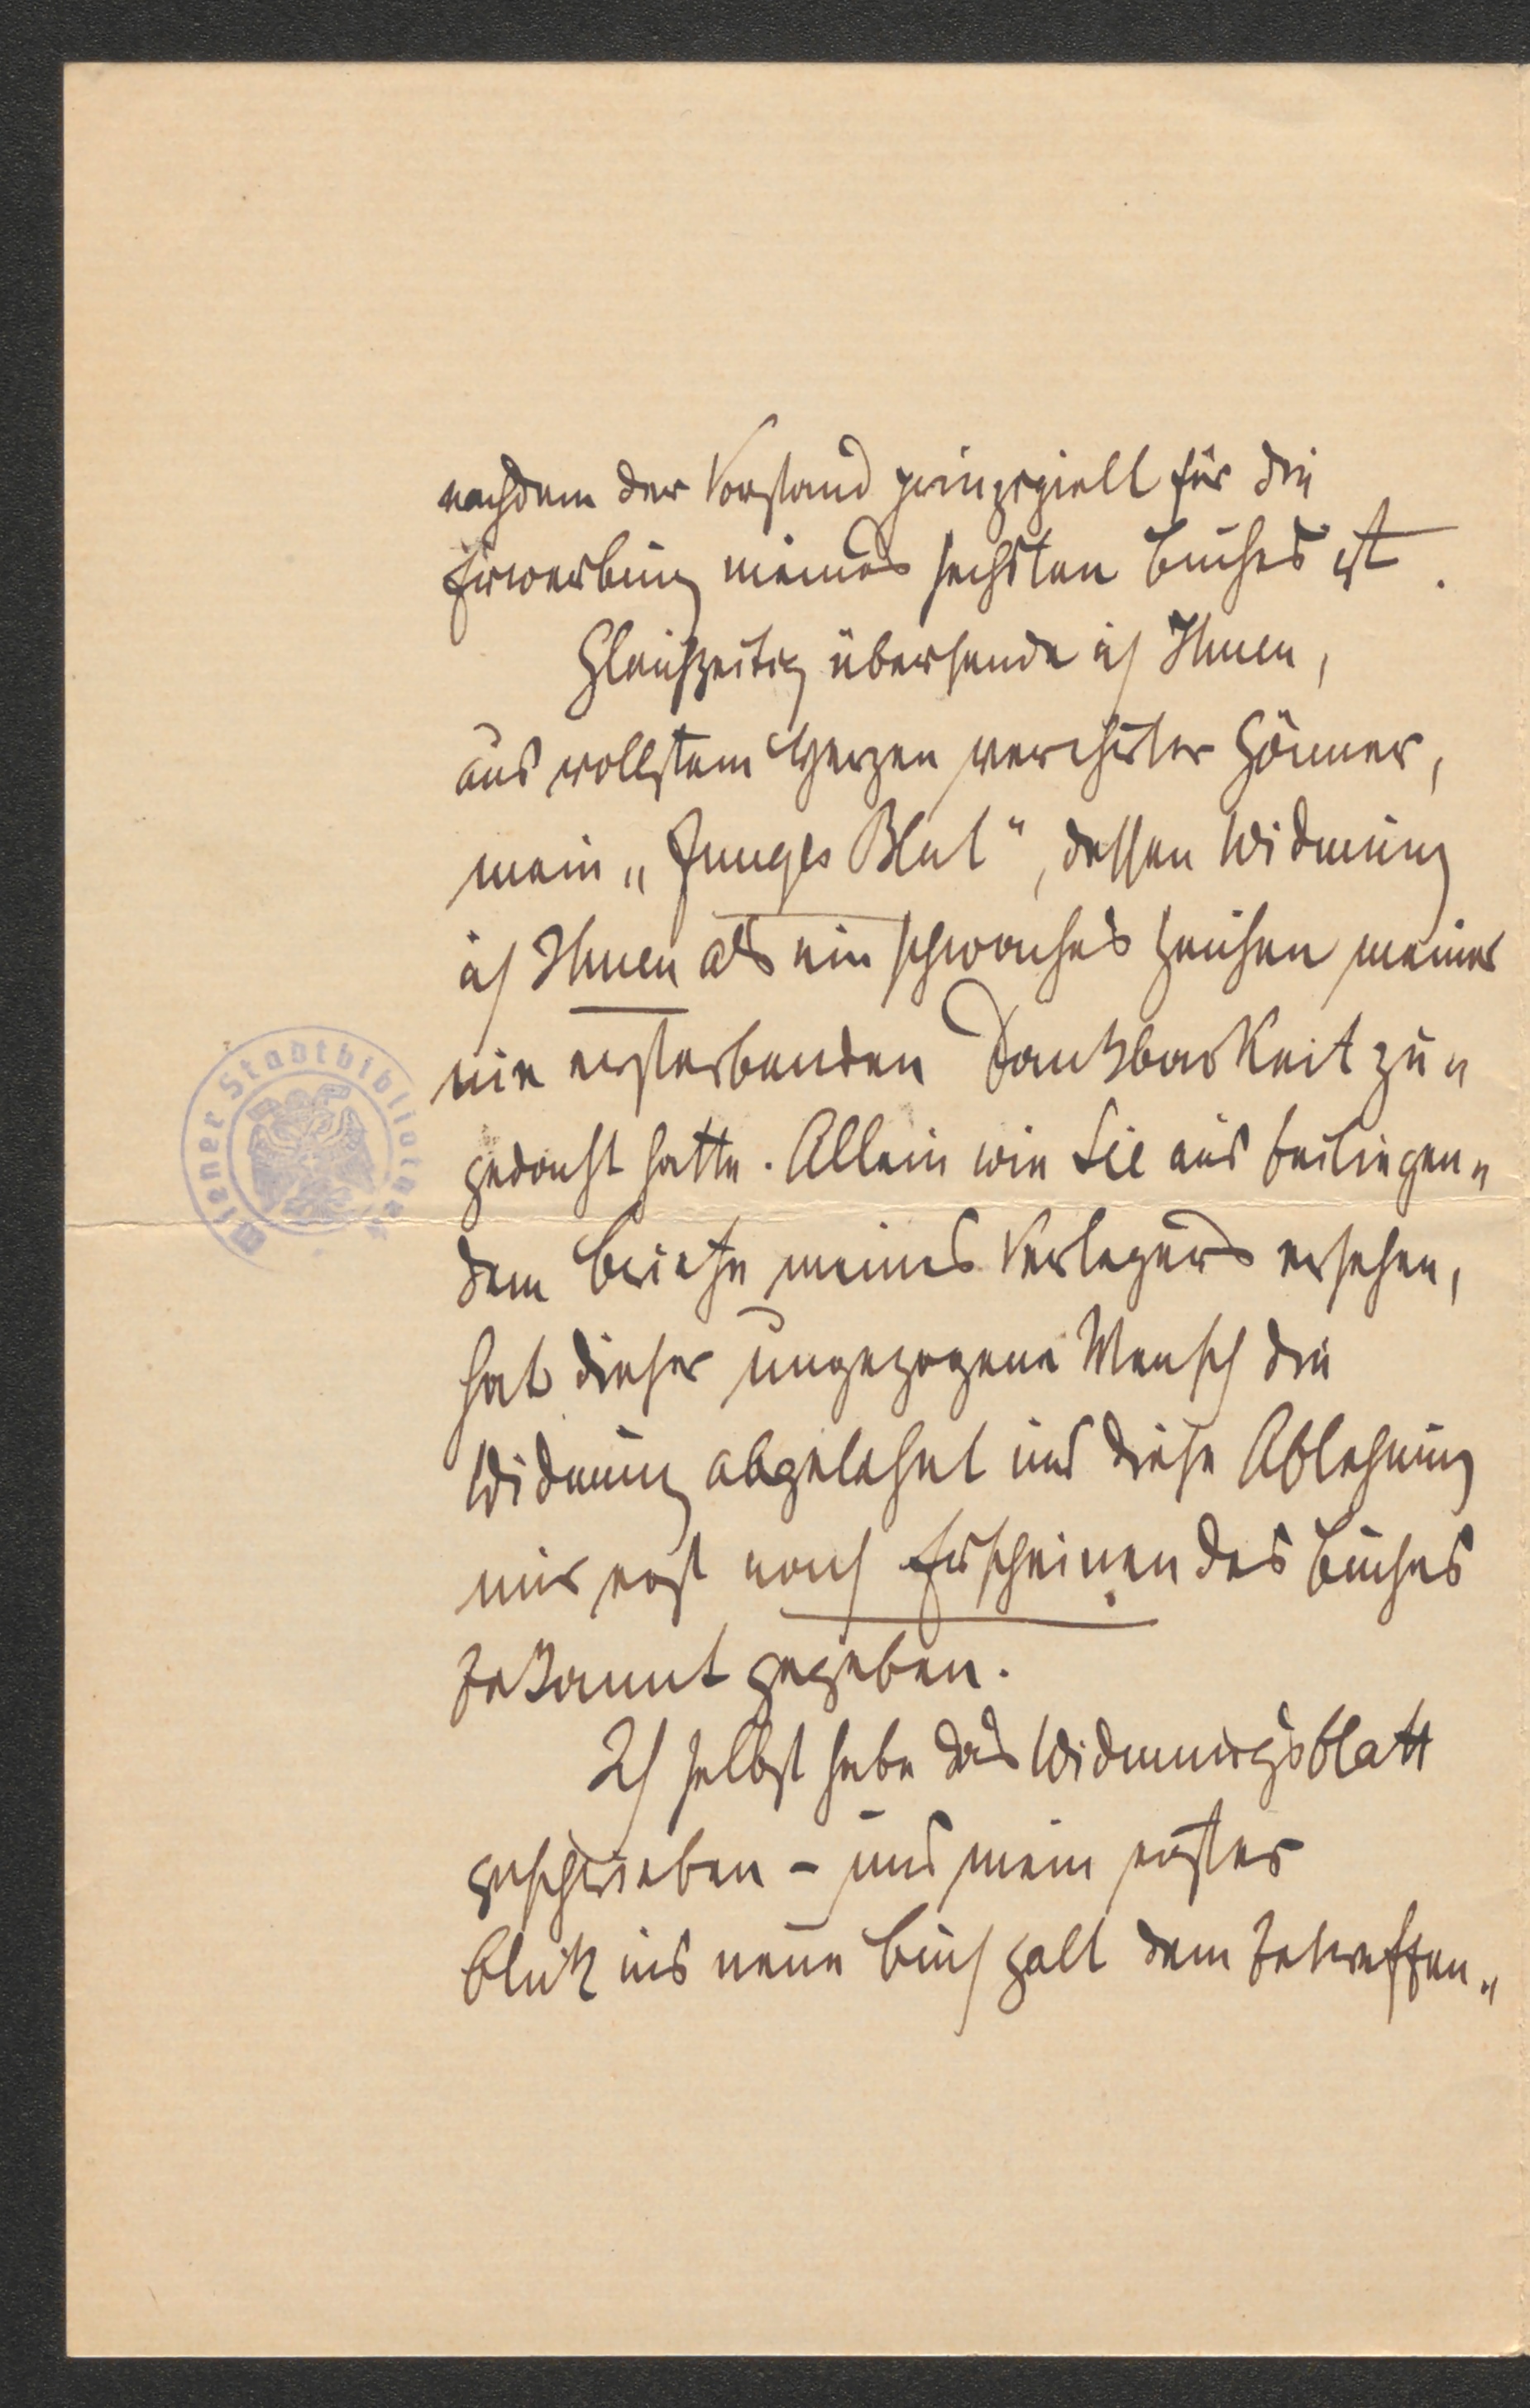 nachdem der Vorstand prinzipiell für die
Erwerbung meines sechsten Buches ist.
Gleichzeitig übersende ich Ihnen,
aus vollstem Herzen verehrter Gönner,
mein „Junges Blut“, dessen Widmung
ich Ihnen als ein schwaches Zeichen meiner
nie ersterbenden Dankbarkeit zu„
gedacht hatte. Allein wie Sie aus beiliegen„
dem Briefe meines Verlegers ersehen,
hat dieser ungezogene Mensch die
Widmung abgelehnt und diese Ablehnung
mir erst nach Erscheinen des Buches
bekannt gegeben.
Ich selbst habe das Widmungsblatt
geschrieben – und mein erster
Blick ins neue Buch galt dem betreffen„
Wiener Stadtbibliothek